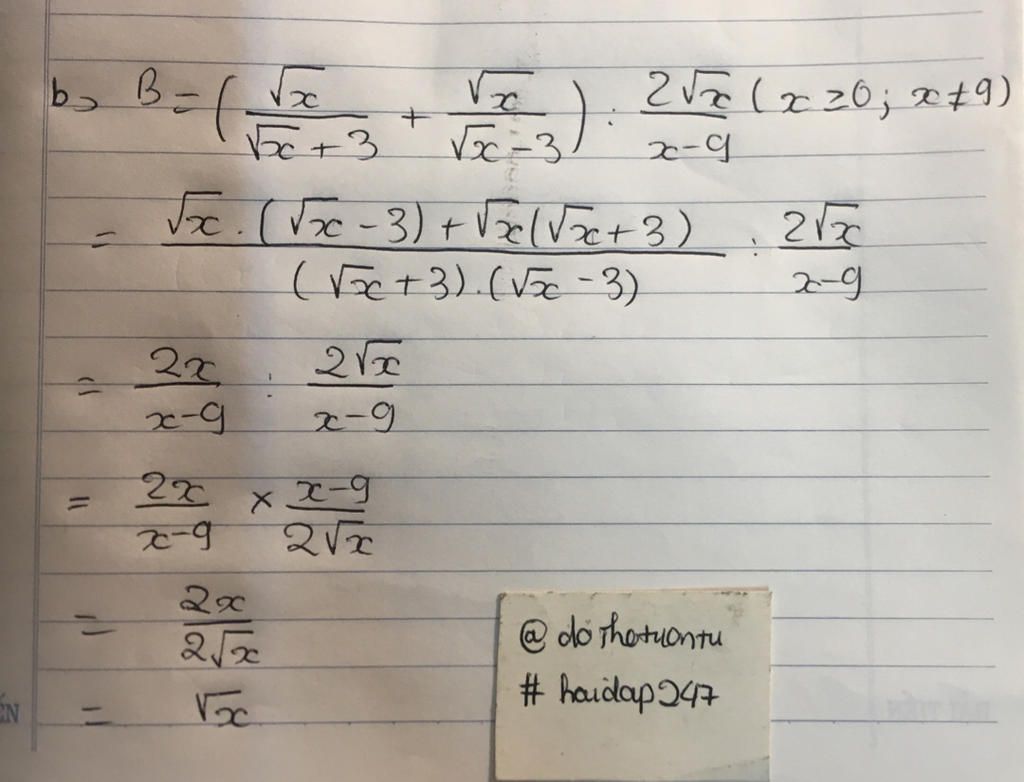 b, B = ( √x / (√x + 3) + √x / (√x - 3) ) : 2√x / (x-9) ( x ≥ 0; x ≠ 9)
= (√x . (√x - 3) + √x(√x + 3)) / ((√x + 3).(√x - 3)) : 2√x / (x-9)
= 2x / (x-9) : 2√x / (x-9)
= 2x / (x-9) × (x-9) / 2√x
= 2x / 2√x
= √x
#hoidap247